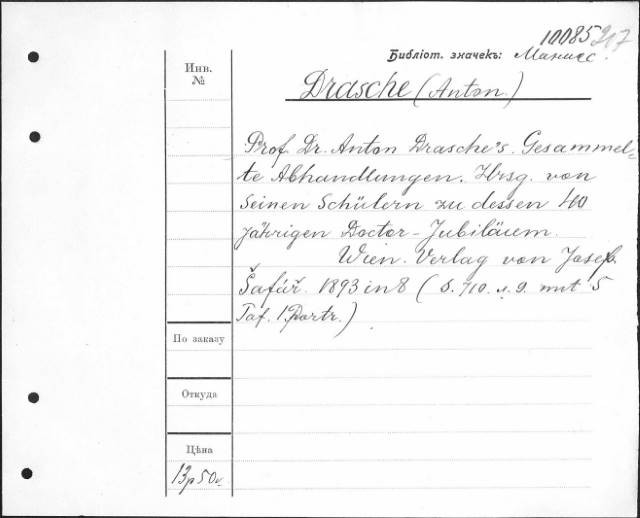 10085
Библіот. значекъ:
Инв.
№
Drasche (Anton.)
Prof. Dr. Anton Drasche's. Gesammel-
te Abhandlungen. Hrsg. von
seinen Schülern zu dessen 40
jährigen Doctor-Jubiläum.
Wien. Verlag von Josef
Šafář. 1893 in 8 (S. 710. 4. 9. mit 5
Taf. 1 Portr.)
По заказу
Откуда
Цѣна
13р 50к